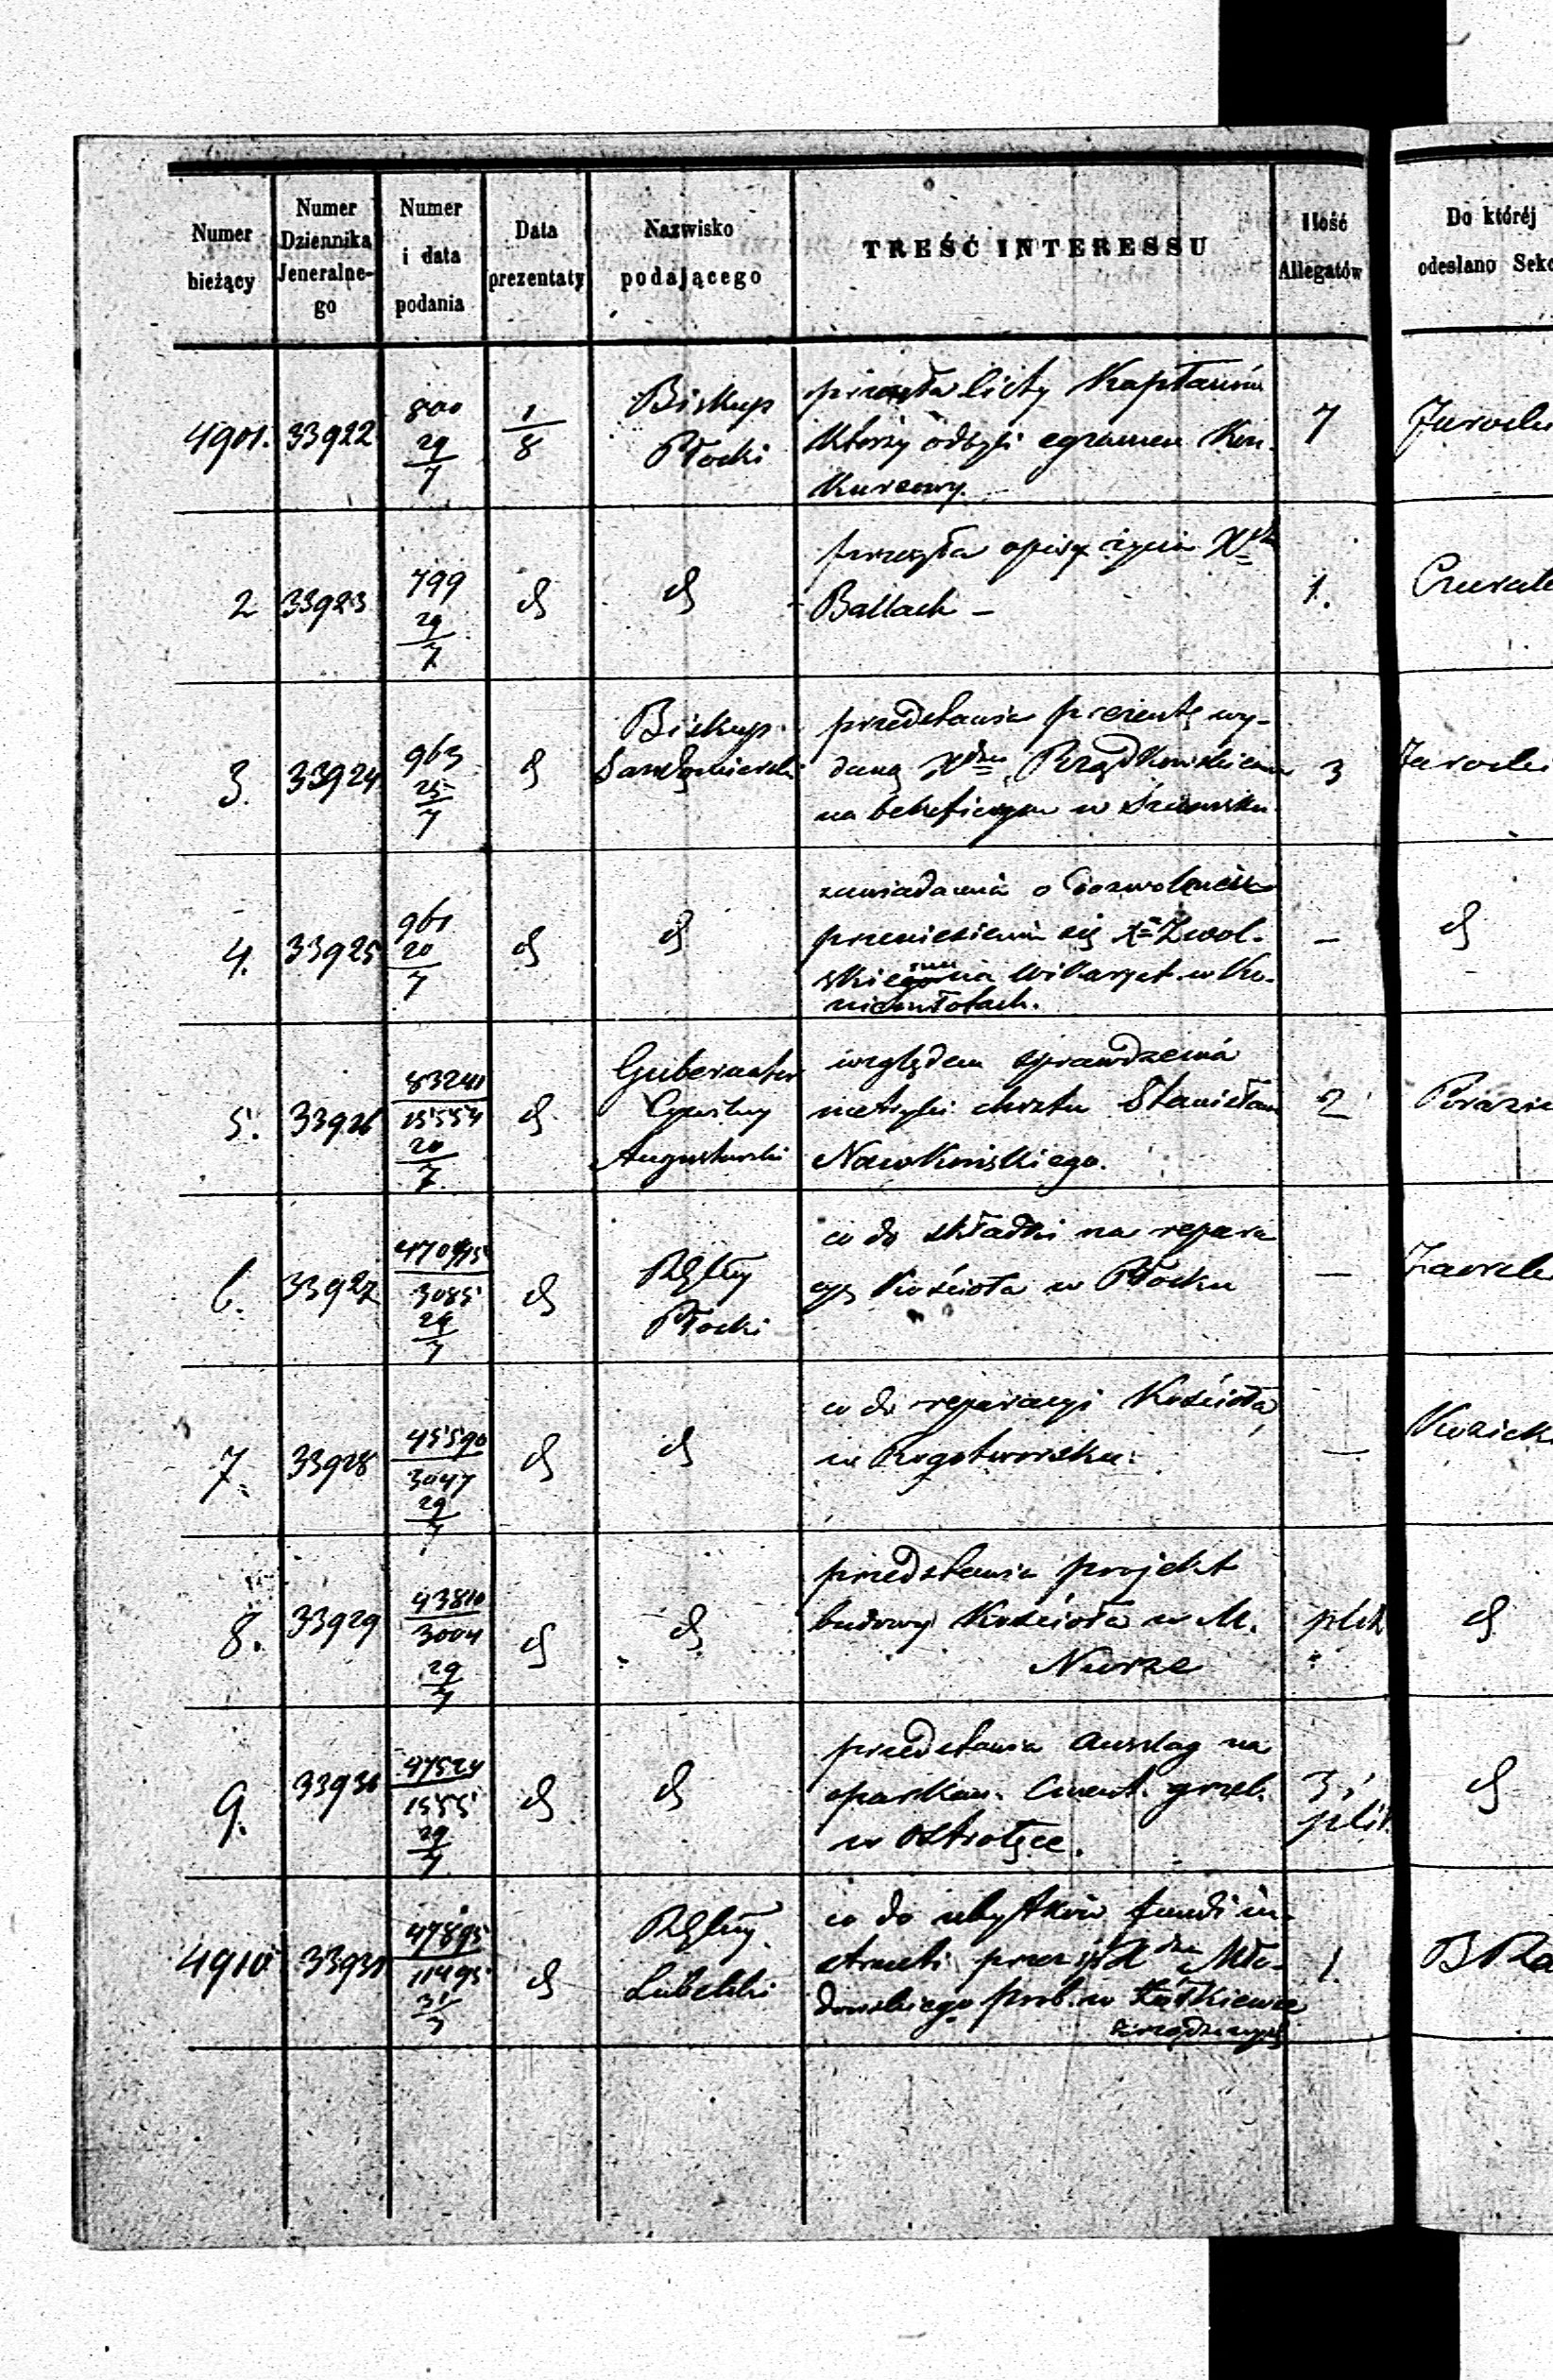 Numer bieżący | Numer Dziennika Jeneralne-go | Numer i data podania | Data prezentaty | Nazwisko podającego | TREŚĆ INTERESSU | Ilość Allegatów | Do któréj odesłano Sekc
4901. | 33922 | 800 29/7 | 1/8 | Biskup Płocki | przesyła listy Kapłanów
którzy odbyli egzamen Kon-
kursowy. | 7
2 | 33923 | 799 29/7 | d | d | przesyła opisy życia X
Ballach – | 1.
3. | 33924 | 963 25/7 | d | Biskup Sandomierski | przedstawia prezentę wy-
daną Xdzu Rządkowskiemu
na beneficyum w | 3 | Jarocki
4. | 33925 | 961 20/7 | d | d | zawiadamia o dozwoleniu
przeniesienia się X Zwol-
skiemu na Wikaryat w Ko-
niemłotach. | – | d
5. | 33926 | 83240 15554 20/7 | d | Gubernator Cywilny Augustowski | względem sprawdzenia
metryki chrztu Stanisława
Nowkuńskiego. | 2
6. | 33927 | 3085 29/7 | d | RGlny Płocki | co do składki na repara
cyę Kościoła w Płocku | –
7. | 33928 | 45590 3047 29/7 | d | d | co do reparacyi Kościoła
w Rogotworsku. | –
8. | 33929 | 43810 3004 29/7 | d | d | przedstawia projekt
budowy Kościoła w M.
Nurze | plik | d
9. | 33930 | 47524 1555 29/7 | d | d | przedstawia anszlag na
oparkan. Cment. grzeb.
w Ostrołęce. | 3 i plik | d
4910 | 33931 | 47895 11495 31/7 | d | RGlny Lubelski | co do ubytków fundi in-
structi przez X dza Mło-
dowskiego prob. w
zrządzonych | 1.